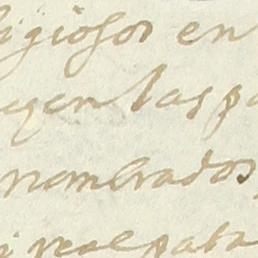 ligiosos en
egen las pa
nombrados
i real pata